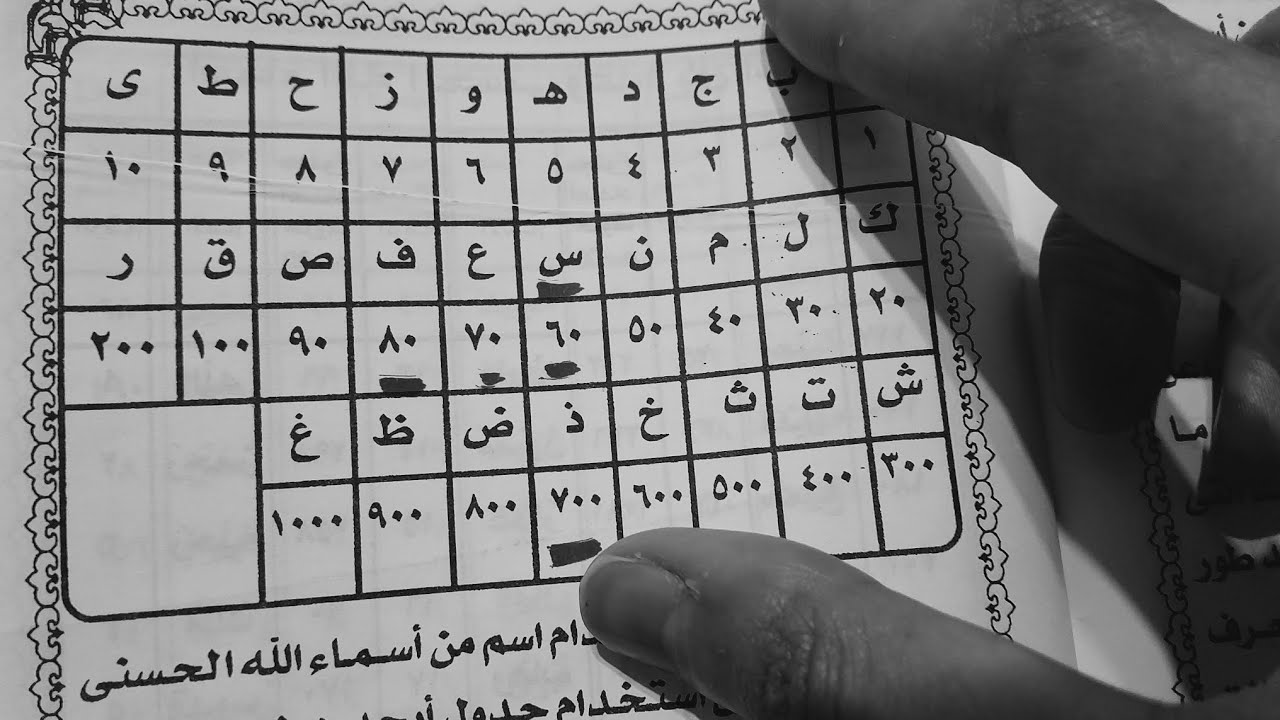 ب ج د هـ و ز ح ط ى
١ ٢ ٣ ٤ ٥ ٦ ٧ ٨ ٩ ١٠
ك ل م ن س ع ف ص ق ر
٢٠ ٣٠ ٤٠ ٥٠ ٦٠ ٧٠ ٨٠ ٩٠ ١٠٠ ٢٠٠
ش ت ث خ ذ ض ظ غ
٣٠٠ ٤٠٠ ٥٠٠ ٦٠٠ ٧٠٠ ٨٠٠ ٩٠٠ ١٠٠٠
اسم من أسماء الله الحسنى
استخدام جدول